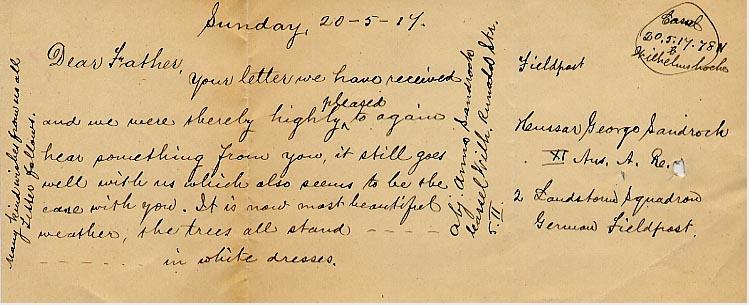 Sunday, 20-5-17.
Dear Father,
Your letter we have received
and we were thereby highly pleased to again
hear something from you, it still goes
well with us which also seems to be the
case with you. It is now most beautiful
weather, the trees all stand - - - - -
- - - - - - in white dresses.
Many kind wishes from us all
Letter follows.
Abj. Anna Sandrock
Cassel Wilh. Str.
5. II.
Cassel
20.5.17. 78N
Wilhelmshoehe
Fieldpost
Hussar George Sandroch
XI A. Re.
2 Landstorm Squadron
German Fieldpost.